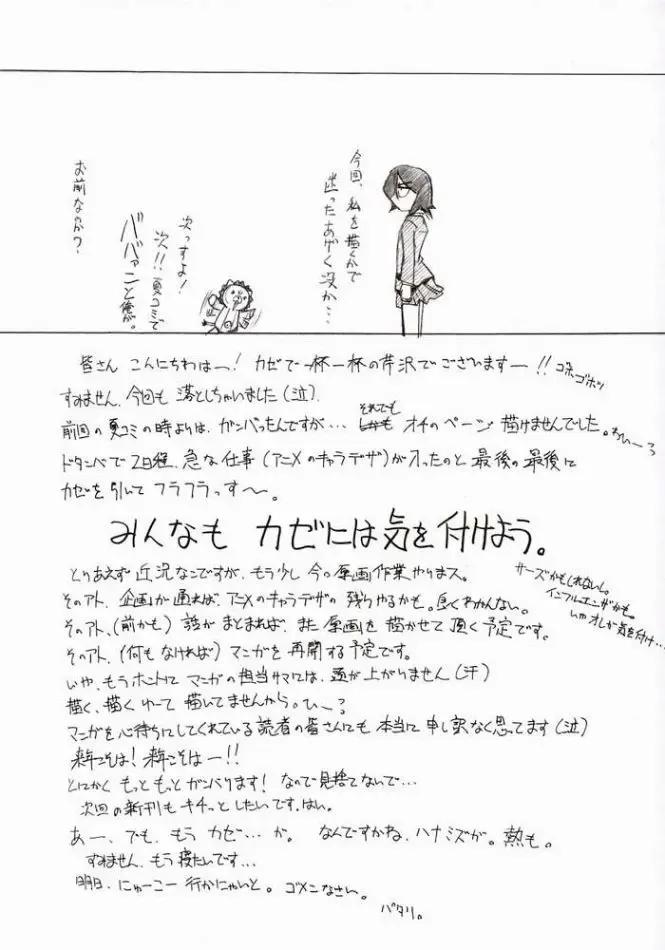 今回、私を描くかで
迷ったあげく没か…
次っすよ!
次!!夏コミで
ババァンと俺が。
お前なのか?
皆さん こんにちわはー! カゼで一杯一杯の芹沢でございますー!! ゴホゴホッ
すみません、今回も 落としちゃいました(泣)
前回の夏コミの時よりは、ガンバったんですが… それでも オチのページ 描けませんでした。わぃーっ
ドタンバで 2日程、急な仕事(アニメのキャラデザ)が入ったのと 最後の最後に
カゼを引いて フラフラっす〜。
みんなも カゼには気を付けよう。
サーズかもしれないし。
インフルエンザかも。
いやオレが気を付け…
とりあえず 近況なこですが、もう少し 今の原画作業やります。
そのアト、企画が通れば、アニメのキャラデザの残りやるかも。良くわかんない。
そのアト、(前かも) 話が まとまれば、また 原画を 描かせて 頂く予定です。
そのアト、(何もなければ) マンガを 再開する予定です。
いや、もうホントに マンガの担当サマには、頭が上がりません(汗)
描く、描くゆーて 描いてませんから。ひぃー?
マンガを心待ちにしてくれている 読者の皆さんにも 本当に 申し訳なく思ってます(泣)
来年こそは! 来年こそはー!!
とにかく もっともっとガンバります! なので見捨てないで…
次回の新刊も キチッとしたいです、はい。
あー、でも、もう カゼ…が。 なんですかね、ハナミズが。熱も。
すみません、もう寝たいです…
明日、にゅーこー 行かにゃいと。ゴメンなさい。
パタリ。